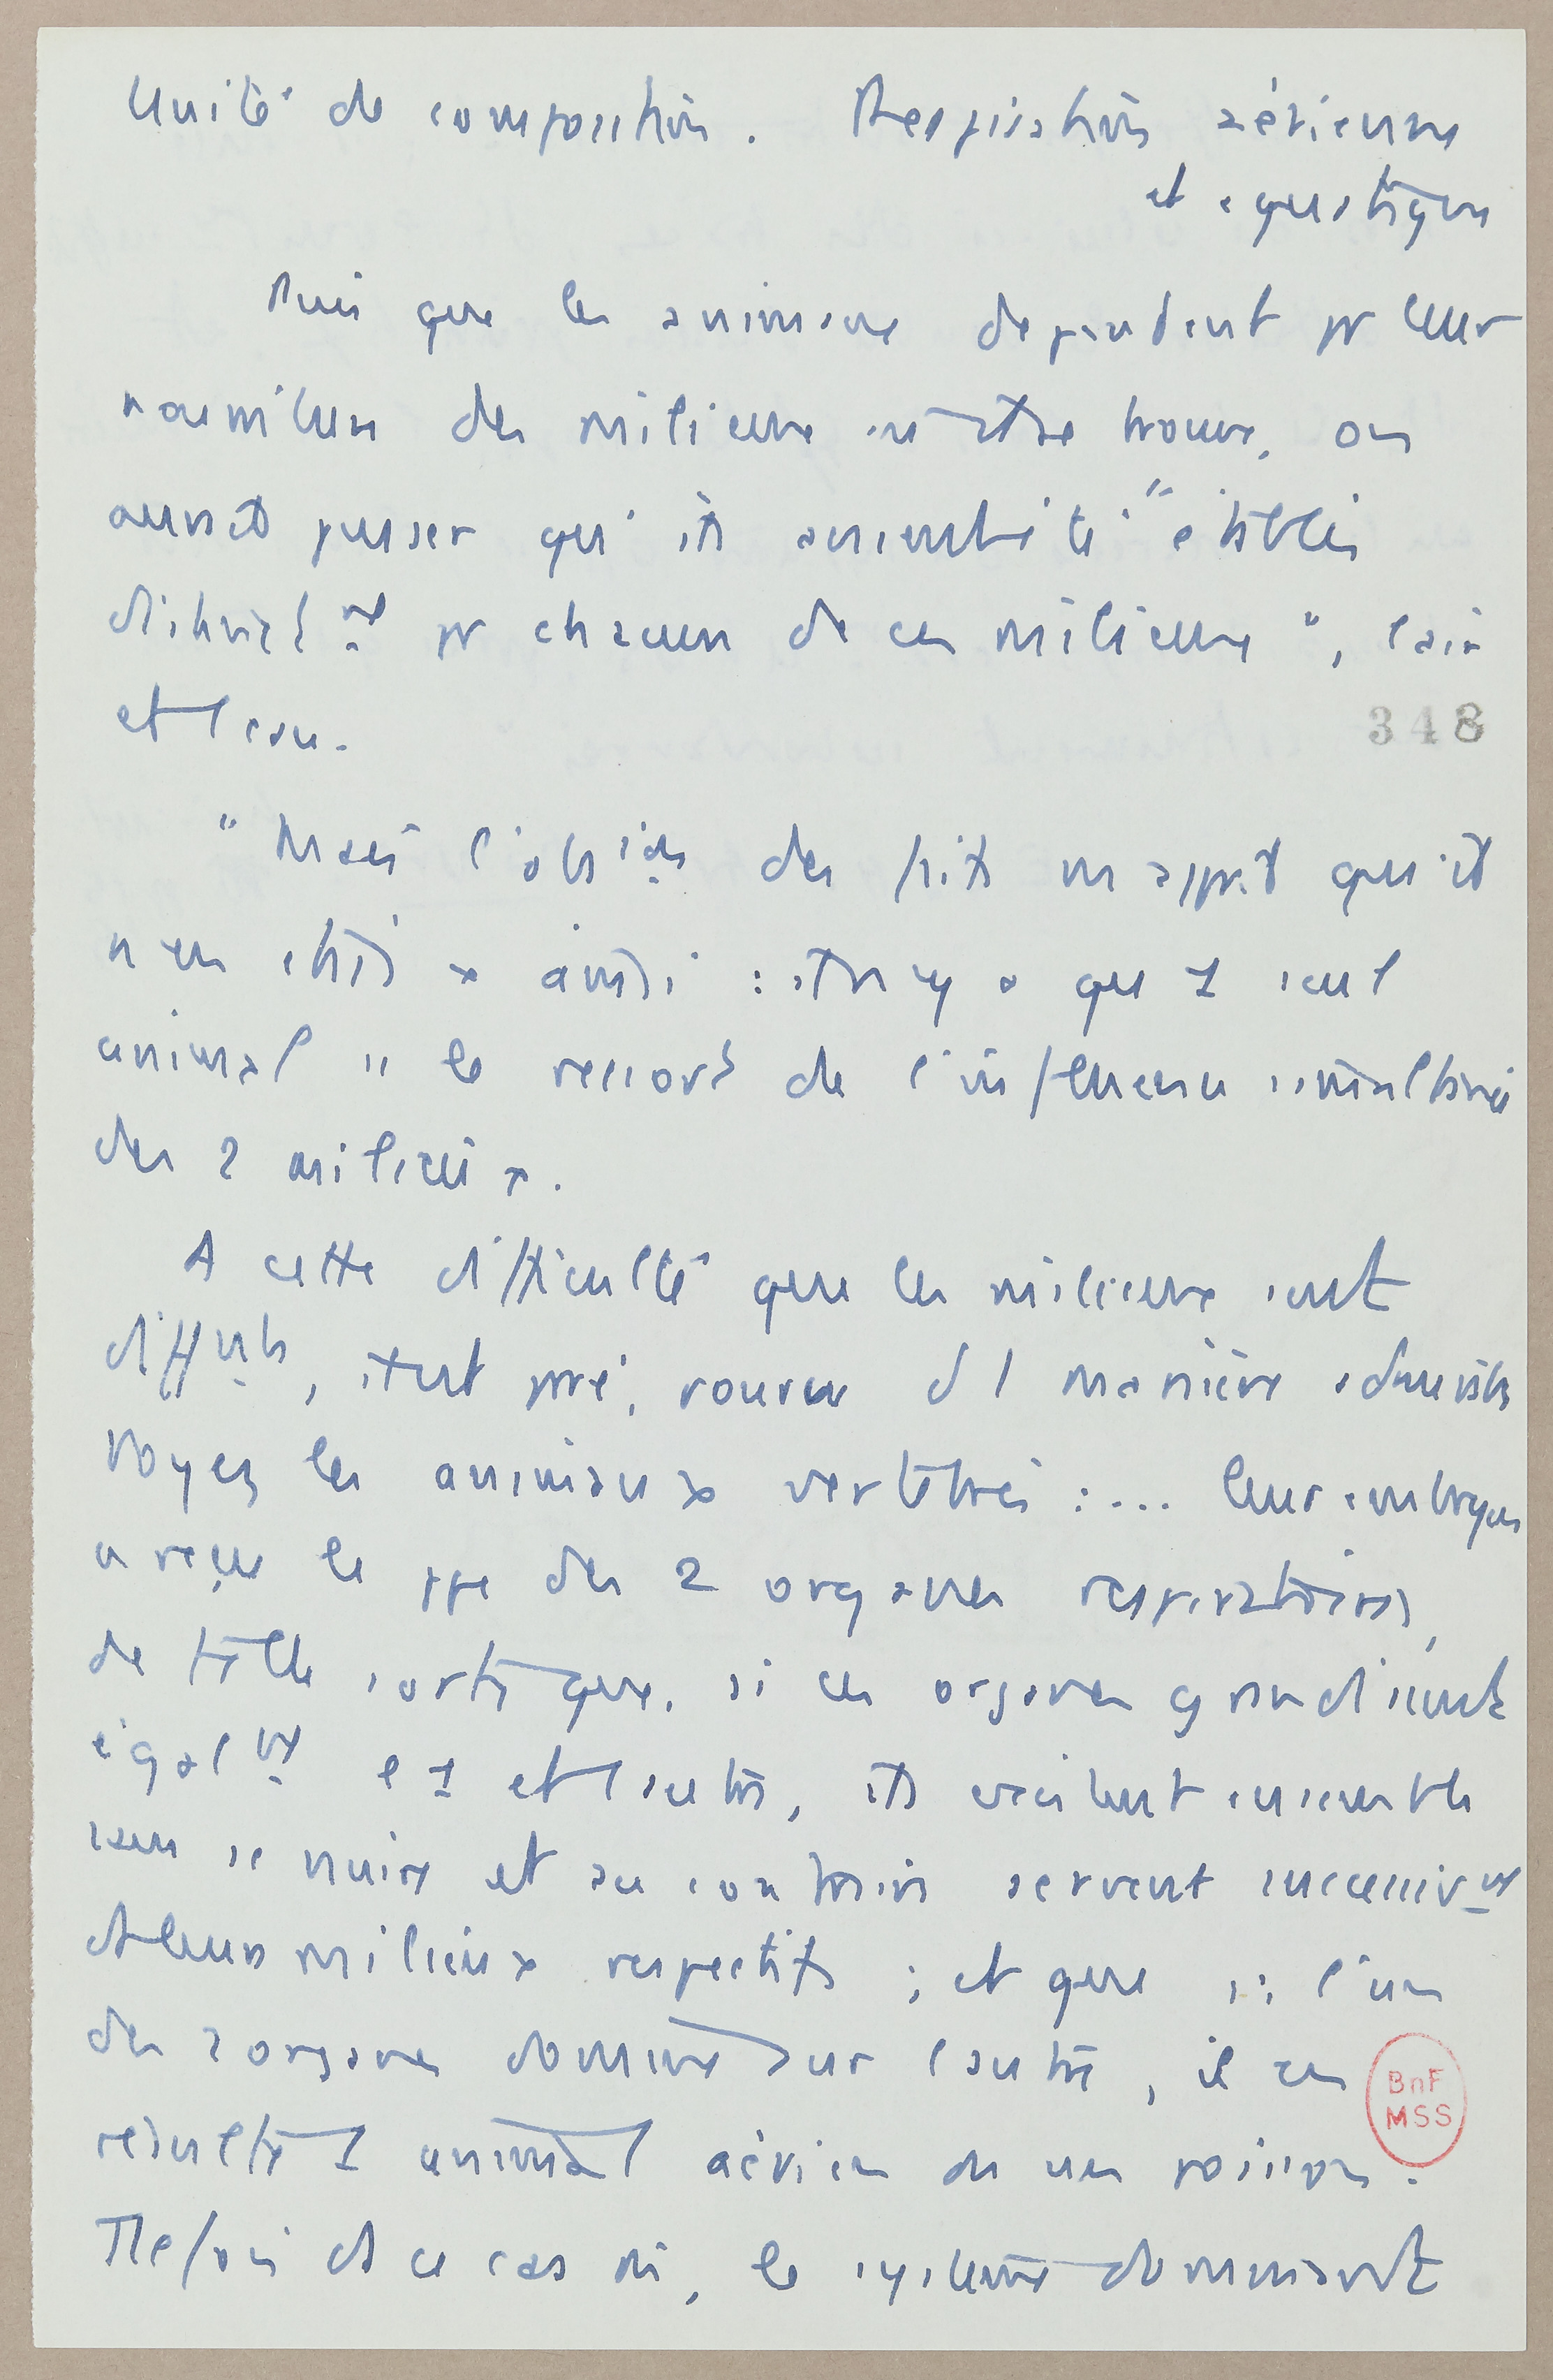 Unité de composition. Respiration aérienne
et aquatique
Puis que les animaux dependent pr leur
nourriture des milieux autre trouve, on
aurait penser qu' ils auraient été "établis
distinct^nt pr chacun de ces milieux", l'air
et l'eau.
348
"Mais l'obs^ion des faits ns apprd qu'il
n'en était x ainsi : il n'y a que 1 seul
animal ss le ressort de l'influence simultanée
des 2 milieux.
A cette difficulté que les milieux sont
diff^nts, il est pré, pourvu d 1 manière admirable
Voyez les animaux vertébrés : ... leur embryon
a reçu le ppe des 2 organes respiratoires,
de telle sorte que, si ces organes grandissent
égal^nt l'1 et l'autre, ils existent ensemble
sans se nuire et au contraire servent successiv^nt
ds leurs milieux respectifs ; et que si l'un
des 2 organes domine sur l'autre, il en
résulte 1 animal aérien ou un poisson.
Tlefois ds ce cas ci, le système dominant
BnF
MSS